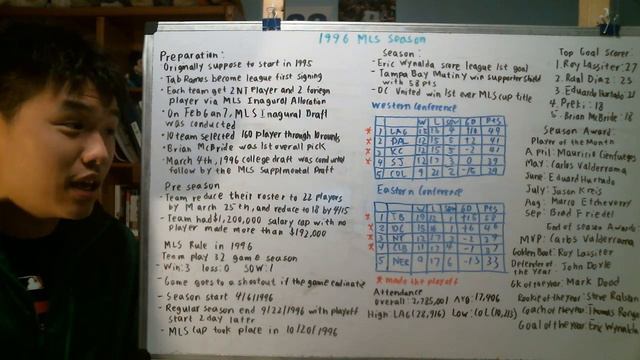 1996 MLS Season
Preparation:
- Orignally suppose to start in 1995
- Tab Ramos become league first signing
- Each team get 2 NT Player and 2 foreign
player via MLS Inagural Allocation
- On Feb 6 n 7, MLS Inagural Draft
was conducted
- 10 team selected 160 player through 16 rounds
- Brian McBride was 1st overall pick
- March 4th, 1996 college draft was conducted
follow by the MLS Supplmental Draft
Pre season
- Team reduce their roster to 22 players
by March 25th, and reduce to 18 by 4/15
- Team had $1,200,000 salary cap with no
player made more than $192,000
MLS Rule in 1996
Team play 32 game season
- Win: 3 loss: 0 SOW: 1
- Game goes to a shootout if the game end in a tie
- Season start 4/6/1996
- Regular season end 9/22/1996 with playoff
start 2 day later
- MLS cup took place in 10/20/1996
Season:
- Eric Wynalda score league 1st goal
- Tampa Bay Mutiny win supporter shield
with 58 pts
- DC United win 1st ever MLS cup title
Western Conference
W L SOW GD Pts
* 1 LAG 49
* 2 DAL 12 15 5 41
* 3 KC 12 15 5 41
* 4 SJ 12 17 3 0 39
5 COL 9 21 2 29
Eastern Conference
W L SOW GD Pts
* 1 TB 19 12 1 58
* 2 DC 15 16 1 46
* 3 NY 39
* 4 CLB 37
5 NER 9 17 6 33
* made the playoff
Attendance
Overall: 2,785,001 Avg: 17,406
High: LAG (28,916) Low: COL (10,213)
Top Goal Scorer
1. Roy Lassiter: 27
2. Raul Diaz: 23
3. Eduardo Hurtado: 21
4. Preki: 18
5. Brian McBride: 18
Season Award:
Player of the Month
April: Mauricio Cienfuegos
May: Carlos Valderrama
June: Eduard Hurtado
July: Jason Kreis
Aug: Marco Etcheverry
Sep: Brad Friedel
End of season Award
MVP: Carlos Valderrama
Golden Boot: Roy Lassiter
Defender of
the Year: John Doyle
Gk of the year: Mark Dodd
Rookie of the Year: Steve Ralston
Coach of the Year: Thomas Rongen
Goal of the Year: Eric Wynalda